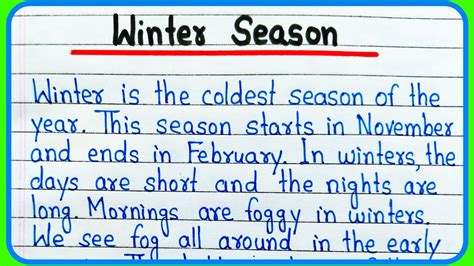 Winter Season
Winter is the coldest season of the
year. This season starts in November
and ends in February. In winters, the
days are short and the nights are
long. Mornings are foggy in winters.
We see fog all around in the early